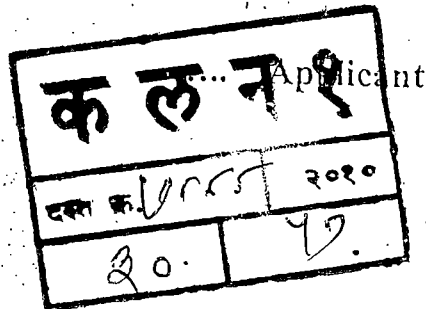 .... Applicant
क ल न १
दस्त क्र. २०१०
३०. ५७.